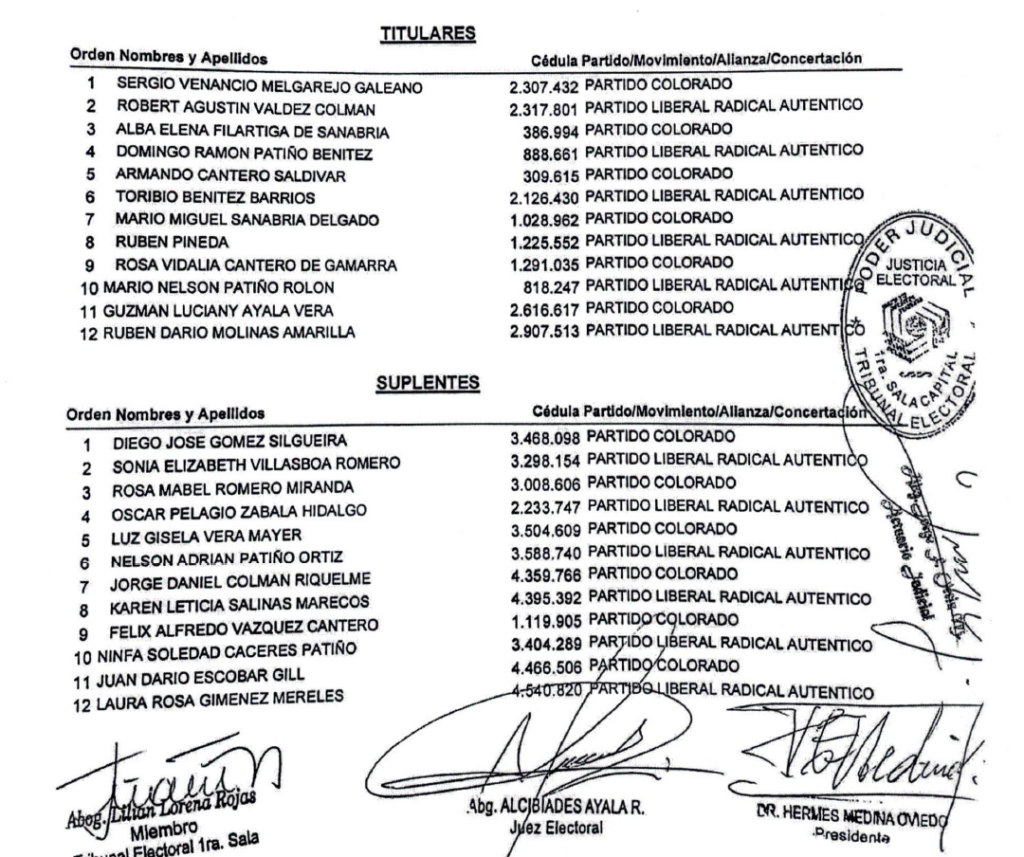 TITULARES
Orden Nombres y Apellidos Cédula Partido/Movimiento/Alianza/Concertación
1 SERGIO VENANCIO MELGAREJO GALEANO 2.307.432 PARTIDO COLORADO
2 ROBERT AGUSTIN VALDEZ COLMAN 2.317.801 PARTIDO LIBERAL RADICAL AUTENTICO
3 ALBA ELENA FILARTIGA DE SANABRIA 386.994 PARTIDO COLORADO
4 DOMINGO RAMON PATIÑO BENITEZ 888.661 PARTIDO LIBERAL RADICAL AUTENTICO
5 ARMANDO CANTERO SALDIVAR 309.615 PARTIDO COLORADO
6 TORIBIO BENITEZ BARRIOS 2.126.430 PARTIDO LIBERAL RADICAL AUTENTICO
7 MARIO MIGUEL SANABRIA DELGADO 1.028.962 PARTIDO COLORADO
8 RUBEN PINEDA 1.225.552 PARTIDO LIBERAL RADICAL AUTENTICO
9 ROSA VIDALIA CANTERO DE GAMARRA 1.291.035 PARTIDO COLORADO
10 MARIO NELSON PATIÑO ROLON 818.247 PARTIDO LIBERAL RADICAL AUTENTICO
11 GUZMAN LUCIANY AYALA VERA 2.616.617 PARTIDO COLORADO
12 RUBEN DARIO MOLINAS AMARILLA 2.907.513 PARTIDO LIBERAL RADICAL AUTENTICO
PODER JUDICIAL
JUSTICIA
ELECTORAL
1ra. SALA CAPITAL
TRIBUNAL ELECTORAL
SUPLENTES
Orden Nombres y Apellidos Cédula Partido/Movimiento/Alianza/Concertación
1 DIEGO JOSE GOMEZ SILGUEIRA 3.468.098 PARTIDO COLORADO
2 SONIA ELIZABETH VILLASBOA ROMERO 3.298.154 PARTIDO LIBERAL RADICAL AUTENTICO
3 ROSA MABEL ROMERO MIRANDA 3.008.606 PARTIDO COLORADO
4 OSCAR PELAGIO ZABALA HIDALGO 2.233.747 PARTIDO LIBERAL RADICAL AUTENTICO
5 LUZ GISELA VERA MAYER 3.504.609 PARTIDO COLORADO
6 NELSON ADRIAN PATIÑO ORTIZ 3.588.740 PARTIDO LIBERAL RADICAL AUTENTICO
7 JORGE DANIEL COLMAN RIQUELME 4.359.766 PARTIDO COLORADO
8 KAREN LETICIA SALINAS MARECOS 4.395.392 PARTIDO LIBERAL RADICAL AUTENTICO
9 FELIX ALFREDO VAZQUEZ CANTERO 1.119.905 PARTIDO COLORADO
10 NINFA SOLEDAD CACERES PATIÑO 3.404.289 PARTIDO LIBERAL RADICAL AUTENTICO
11 JUAN DARIO ESCOBAR GILL 4.466.506 PARTIDO COLORADO
12 LAURA ROSA GIMENEZ MERELES 4.540.820 PARTIDO LIBERAL RADICAL AUTENTICO
Actuario Judicial
Abog. Lilian Lorena Rojas
Miembro
Tribunal Electoral 1ra. Sala
Abg. ALCIBIADES AYALA R.
Juez Electoral
DR. HERMES MEDINA OVIEDO
Presidente